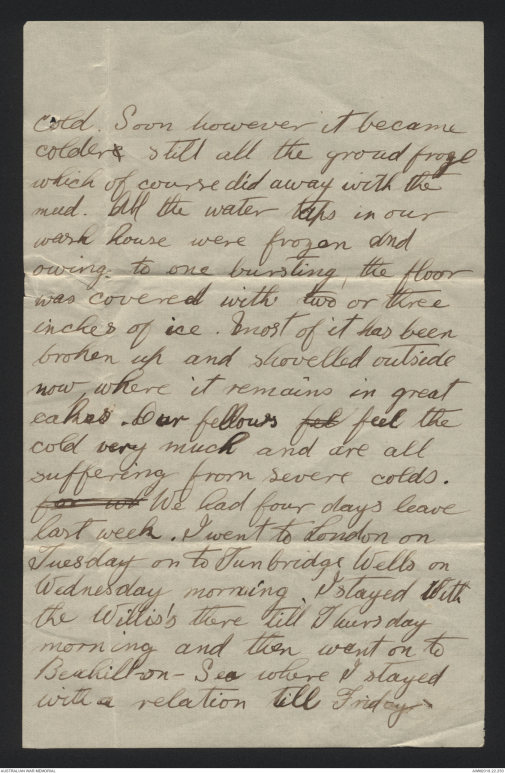 cold. Soon however it became
colder & still all the groud froze
which of course did away with the
mud. All the water taps in our
wash house were frozen and
owing to one bursting, the floor
was covered with two or three
inches of ice. Most of it has been
broken up and shovelled outside
now where it remains in great
cakes. Our fellows fel feel the
cold very much and are all
suffering from severe colds.
We had four days leave
last week. I went to London on
Tuesday on to Tunbridge Wells on
Wednesday morning. I stayed with
the Willis's there till Thursday
morning and then went on to
Bexhill-on-Sea where I stayed
with a relation till Friday
AUSTRALIAN WAR MEMORIAL